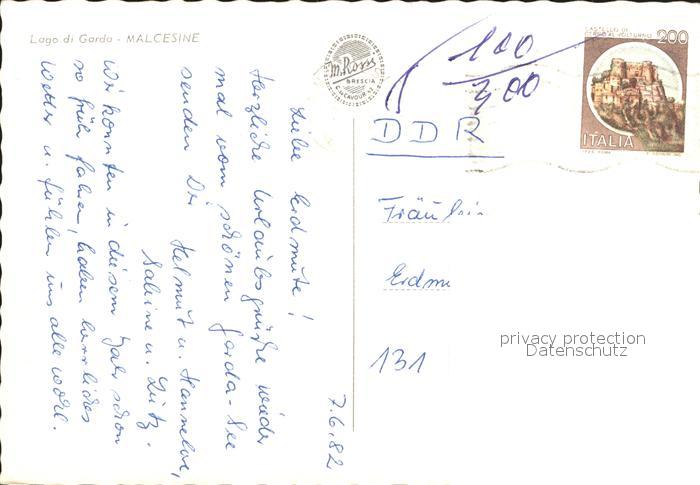 Lago di Garda - MALCESINE
M. Romi
BRESCIA
C. CAVOUR 42
100
300
CASTELLO DI
CERRO AL VOLTURNO
200
ITALIA
7.6.82
Liebe Erdmute!
Herzliche Urlaubsgrüße wieder
mal vom schönen Garda-See
senden Dir Helmut u. Hannelore,
Sabine u. Lutz.
Wir konnten in diesem Jahr schon
so früh fahren, haben herrliches
Wetter u. fühlen uns alle wohl.
DDR
Fräulein
Erdmu
131
privacy protection
Datenschutz